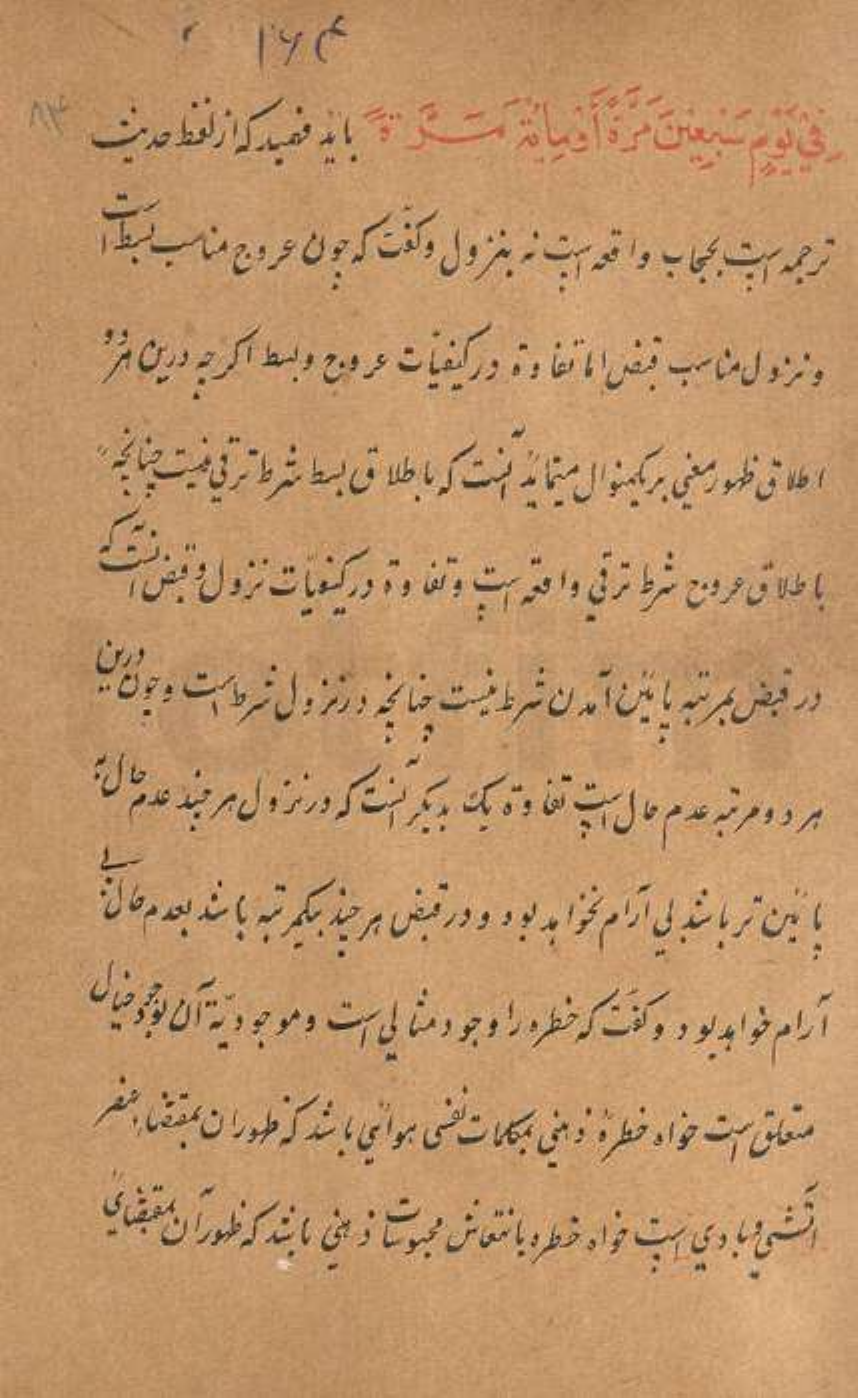 ۱۶۴
۸۳
فِيْ يَوْمٍ سَبْعِيْنَ مَرَّةً أَوْ مِائَةَ مَرَّةً بايد فهميد كه از لفظ حديث
ترجمه است بحجاب واقعه است نه بنزول و كفت كه چون عروج مناسب بسط است
و نزول مناسب قبض اما تفاوة در كيفيّات عروج و بسط اكرچه درين هر دو
اطلاق ظهور معني بر يكمنوال مينمايد آنست كه باطلاق بسط شرط ترقي نيست چنانچه
باطلاق عروج شرط ترقي واقعه است و تفاوة در كيفيّات نزول و قبض آنست كه
در قبض بمرتبه پائين آمدن شرط نيست چنانچه در نزول شرط است و چون درين
هر دو مرتبه عدم حال است تفاوة يك بديكر آنست كه در نزول هر چند عدم حال به
پائين تر باشد بي آرام نخواهد بود و در قبض هر چند بيكمرتبه باشد بعدم حال بي
آرام خواهد بود و كفت كه خطره را وجود مثالي است و موجوديّة آن بوجود خيال
متعلق است خواه خطرهٔ ذهني بمكلمات نفسي هوائي باشد كه ظهور آن بمقتضاء عنصر
آتشي و بادي است خواه خطره بانتعاش محبوسات ذهني باشد كه ظهور آن بمقتضاي